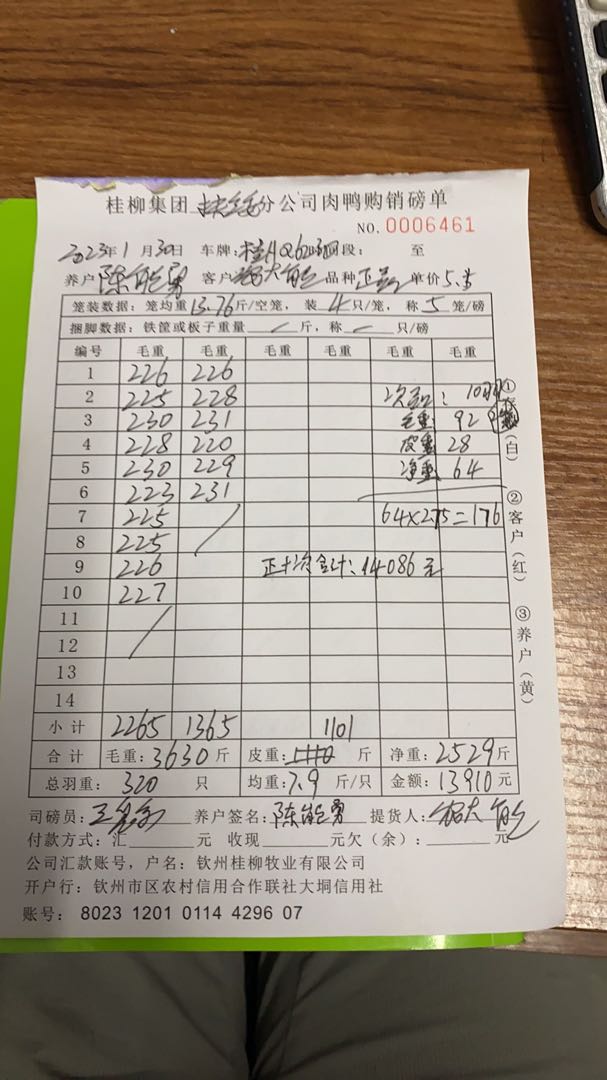 桂柳集团 扶绥 分公司肉鸭购销磅单
NO. 0006461
2023年1月30日 车牌: 桂A 段: 至
养户 陈能勇 客户 大 品种 正品 单价 5.5
笼装数据: 笼均重13.76斤/空笼, 装4只/笼, 称5笼/磅
捆脚数据: 铁筐或板子重量 / 斤, 称 / 只/磅
编号 毛重 毛重 毛重 毛重 毛重 毛重
1 226 226
2 225 228 次品: 10羽
3 230 231 毛重 92
4 228 220 皮重 28
5 230 229 净重 64
6 223 231
7 225 / 64×2.75=176
8 225
9 226 正+次合计: 14086元
10 227
11 /
12
13
14
小计 2265 1365 1101
合计 毛重: 3630斤 皮重: 1110 斤 净重: 2529斤
总羽重: 320 只 均重: 7.9 斤/只 金额: 13910元
司磅员: 王 养户签名: 陈能勇 提货人: 大
付款方式: 汇 元 收现 元欠(余): 元
公司汇款账号, 户名: 钦州桂柳牧业有限公司
开户行: 钦州市区农村信用合作联社大垌信用社
账号: 8023 1201 0114 4296 07
① (白)
② 客户 (红)
③ 养户 (黄)